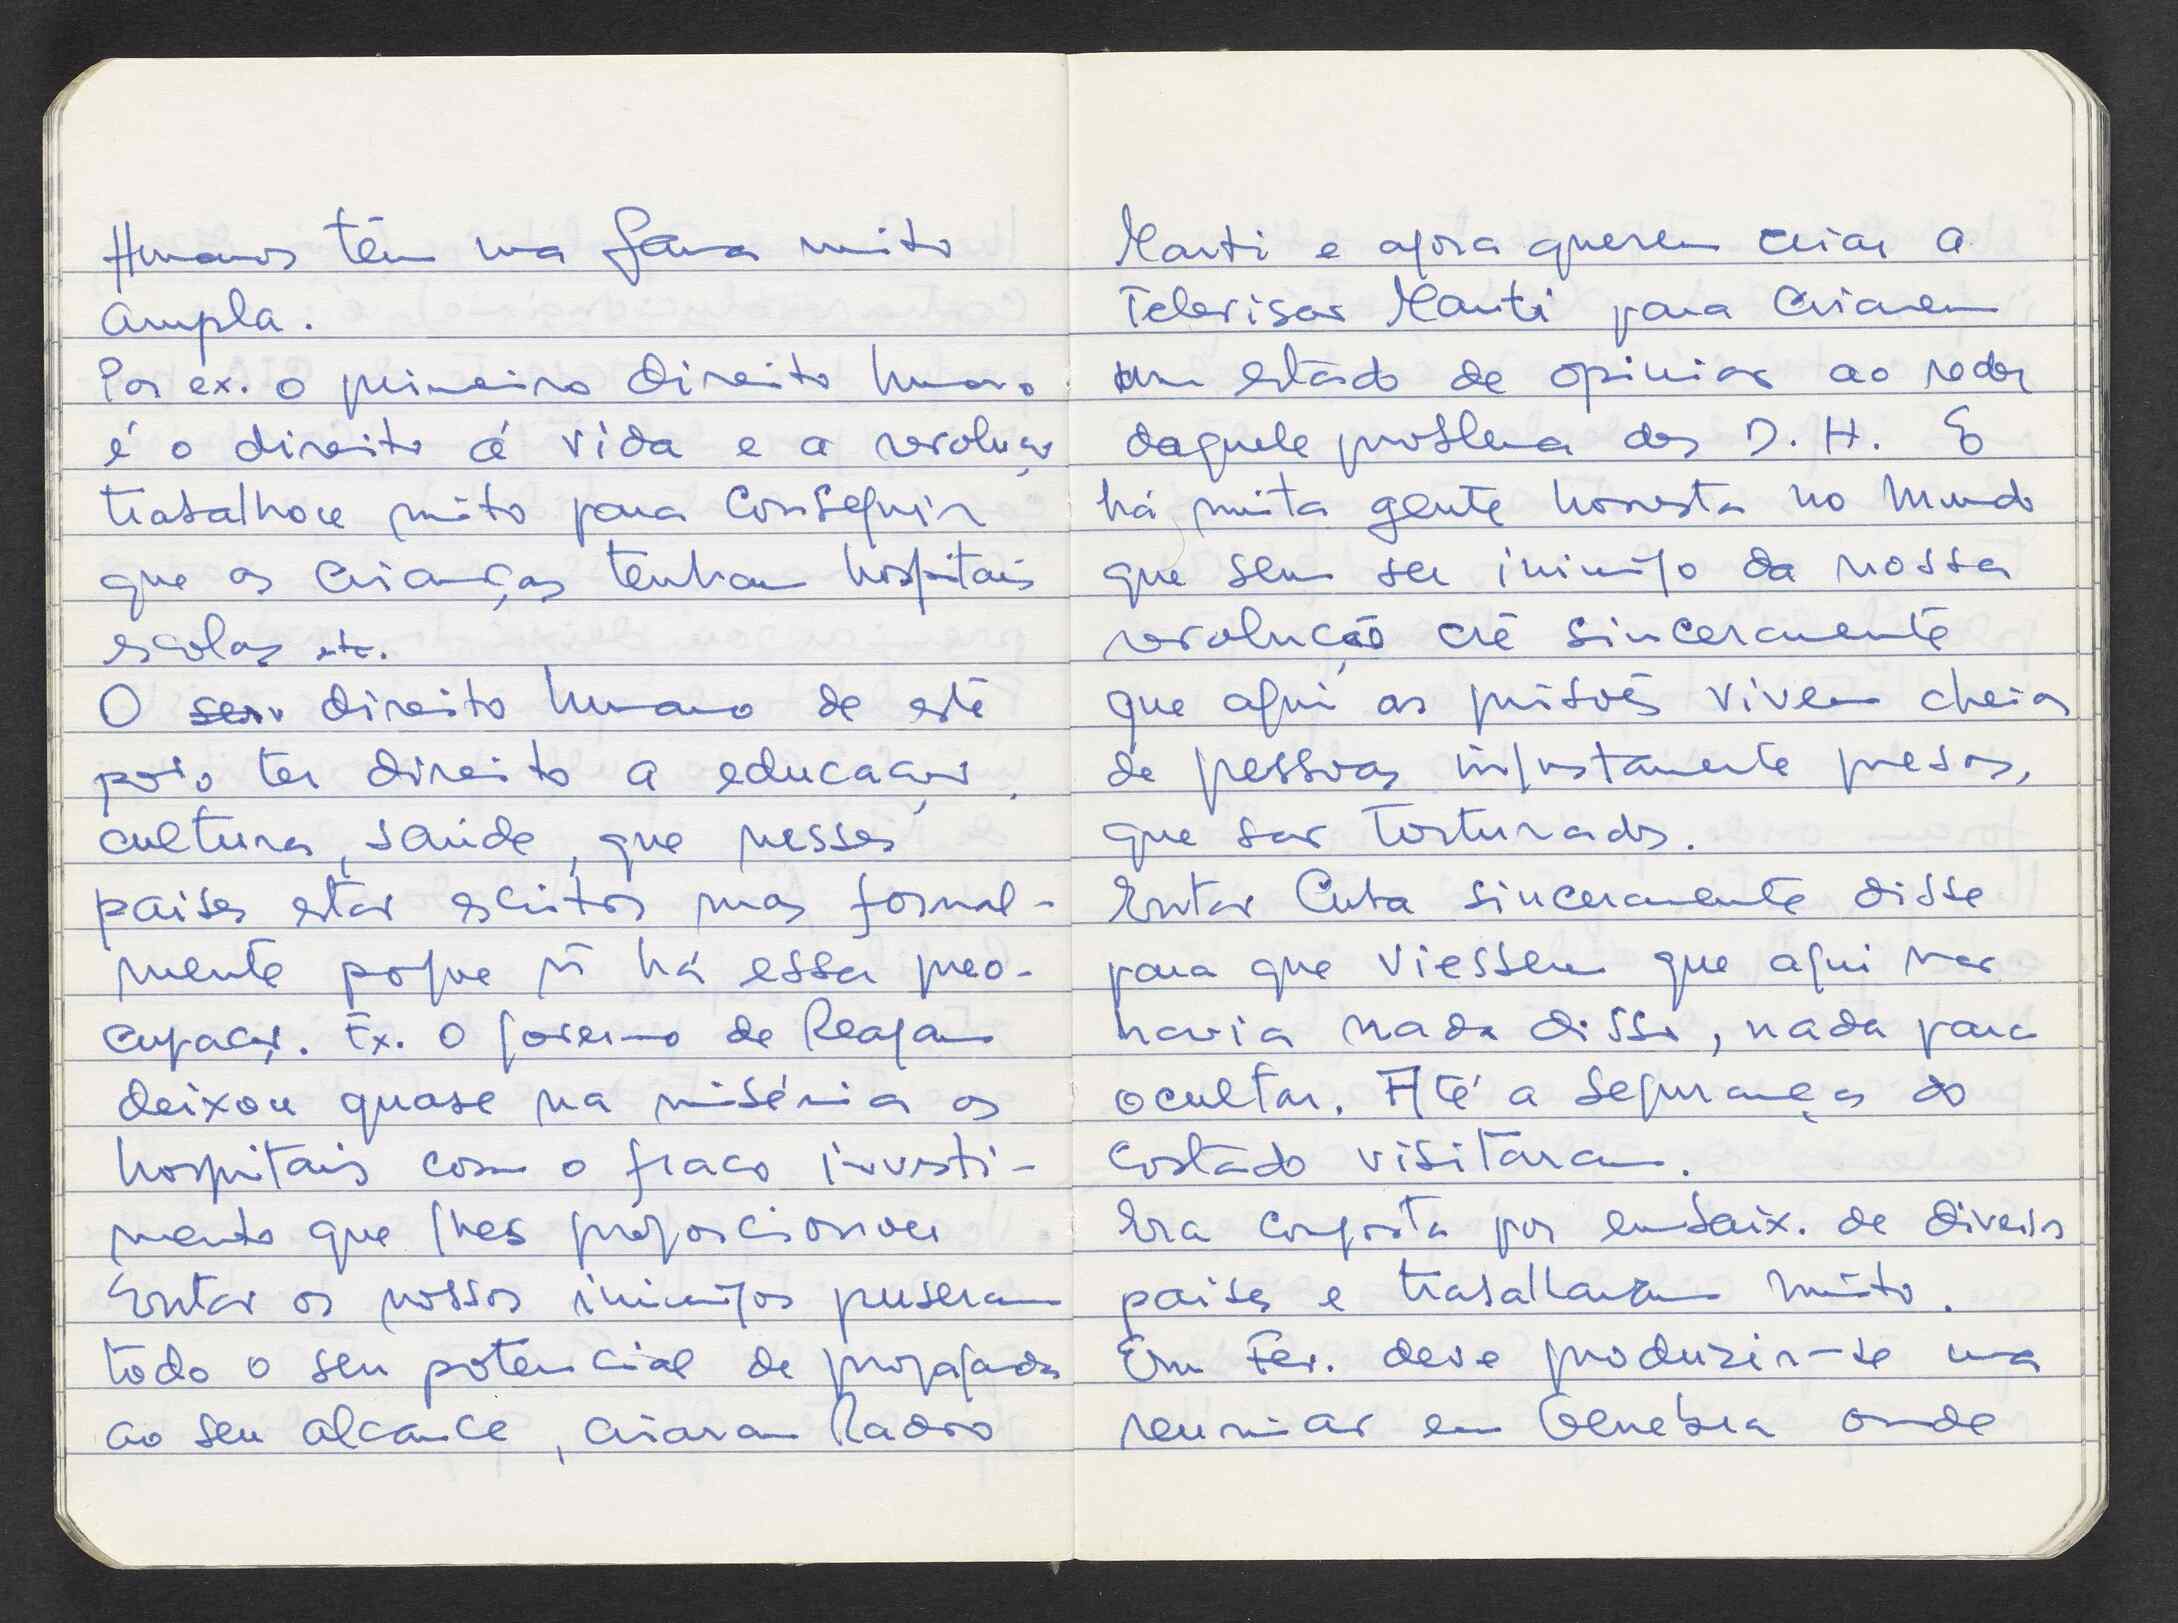 Humanos têm uma gama muito
ampla.
Por ex. o primeiro direito humano
é o direito á vida e a revolução
trabalhou muito para conseguir
que as crianças tenham hospitais
escolas etc.
O ser direito humano de este
povo ter direito a educação,
cultura, saúde, que nesses
paises estão escritos mas formal-
mente porque ñ há essa preo-
cupação. Ex. O governo de Reagan
deixou quase na miséria os
hospitais com o fraco investi-
mento que lhes proporcionou
Então os nossos inimigos puseram
todo o seu potencial de propaganda
ao seu alcance, criaram Radio
Marti e agora querem criar a
Televisão Marti para criarem
um estado de opinião ao redor
daquele problema dos D. H. E
há muita gente honesta no mundo
que sem ser inimigo da nossa
revolução crê sinceramente
que aqui as prisões vivem cheias
de pessoas injustamente presas,
que são torturados.
Então Cuba sinceramente disse
para que viessem que aqui não
havia nada disso, nada para
ocultar. Até a segurança do
Estado visitaram.
Era composta por embaix. de diversos
paises e trabalharam muito.
Em Fev. deve produzir-se uma
reunião em Genebra onde